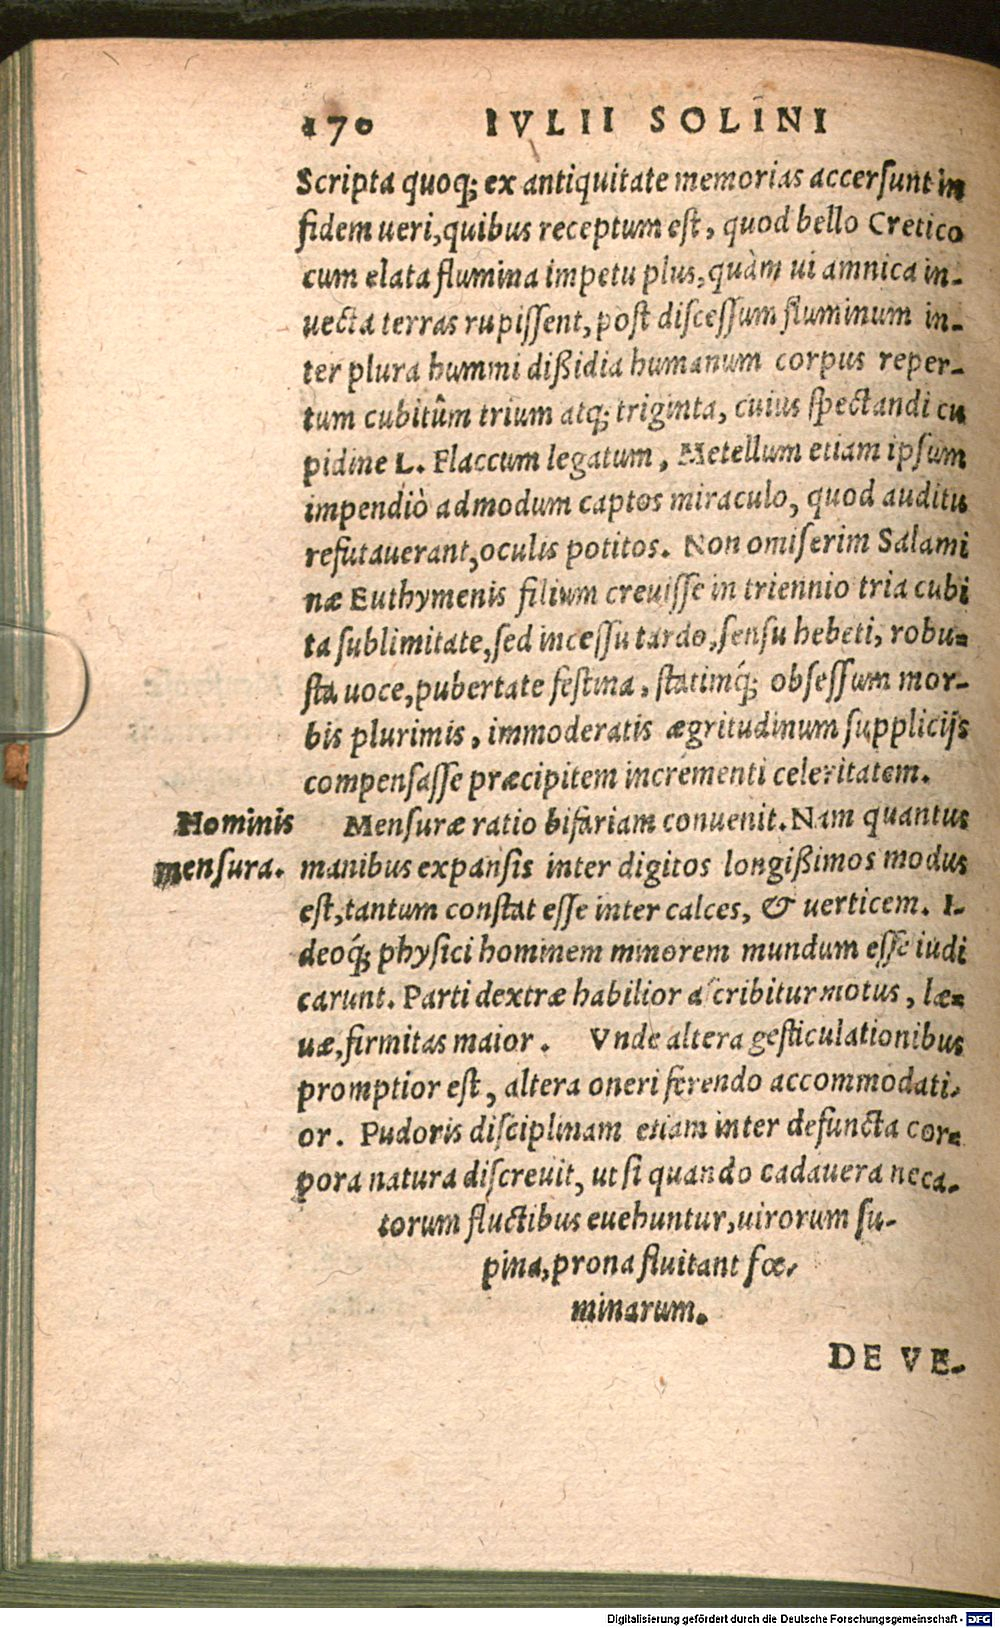 170 IVLII SOLINI
Scripta quoq; ex antiquitate memorias accersunt in
fidem ueri, quibus receptum est, quod bello Cretico
cum elata flumina impetu plus, quàm ui amnica in-
uecta terras rupissent, post discessum fluminum in-
ter plura hummi dißidia humanum corpus reper-
tum cubitûm trium atq; triginta, cuius spectandi cu
pidine L. Flaccum legatum, Metellum etiam ipsum
impendiò admodum captos miraculo, quod auditu
refutauerant, oculis potitos. Non omiserim Salami
næ Euthymenis filium creuisse in triennio tria cubi
ta sublimitate, sed incessu tardo, sensu hebeti, robu-
sta uoce, pubertate festina, statimq́; obsessum mor-
bis plurimis, immoderatis ægritudinum supplicijs
compensasse præcipitem incrementi celeritatem.
Hominis
mensura.
Mensuræ ratio bifariam conuenit. Nam quantus
manibus expansis inter digitos longißimos modus
est, tantum constat esse inter calces, & uerticem. I-
deoq́; physici hominem minorem mundum esse iudi
carunt. Parti dextræ habilior ascribitur motus, læ-
uæ, firmitas maior. Vnde altera gesticulationibus
promptior est, altera oneri ferendo accommodati-
or. Pudoris disciplinam etiam inter defuncta cor-
pora natura discreuit, ut si quando cadauera neca-
torum fluctibus euehuntur, uirorum su-
pina, prona fluitant fœ-
minarum.
DE VE-
Digitalisierung gefördert durch die Deutsche Forschungsgemeinschaft - DFG